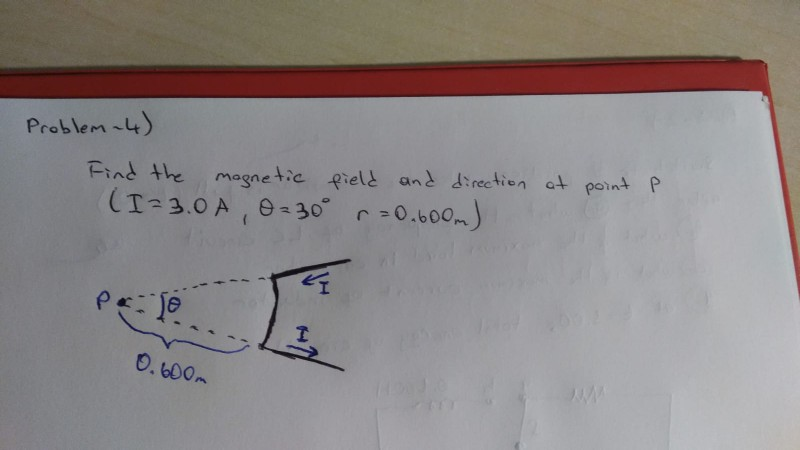 Problem-4)
Find the magnetic field and direction at point P
(I=3.0 A, θ=30° r=0.600m)
I
P θ
I
0.600m